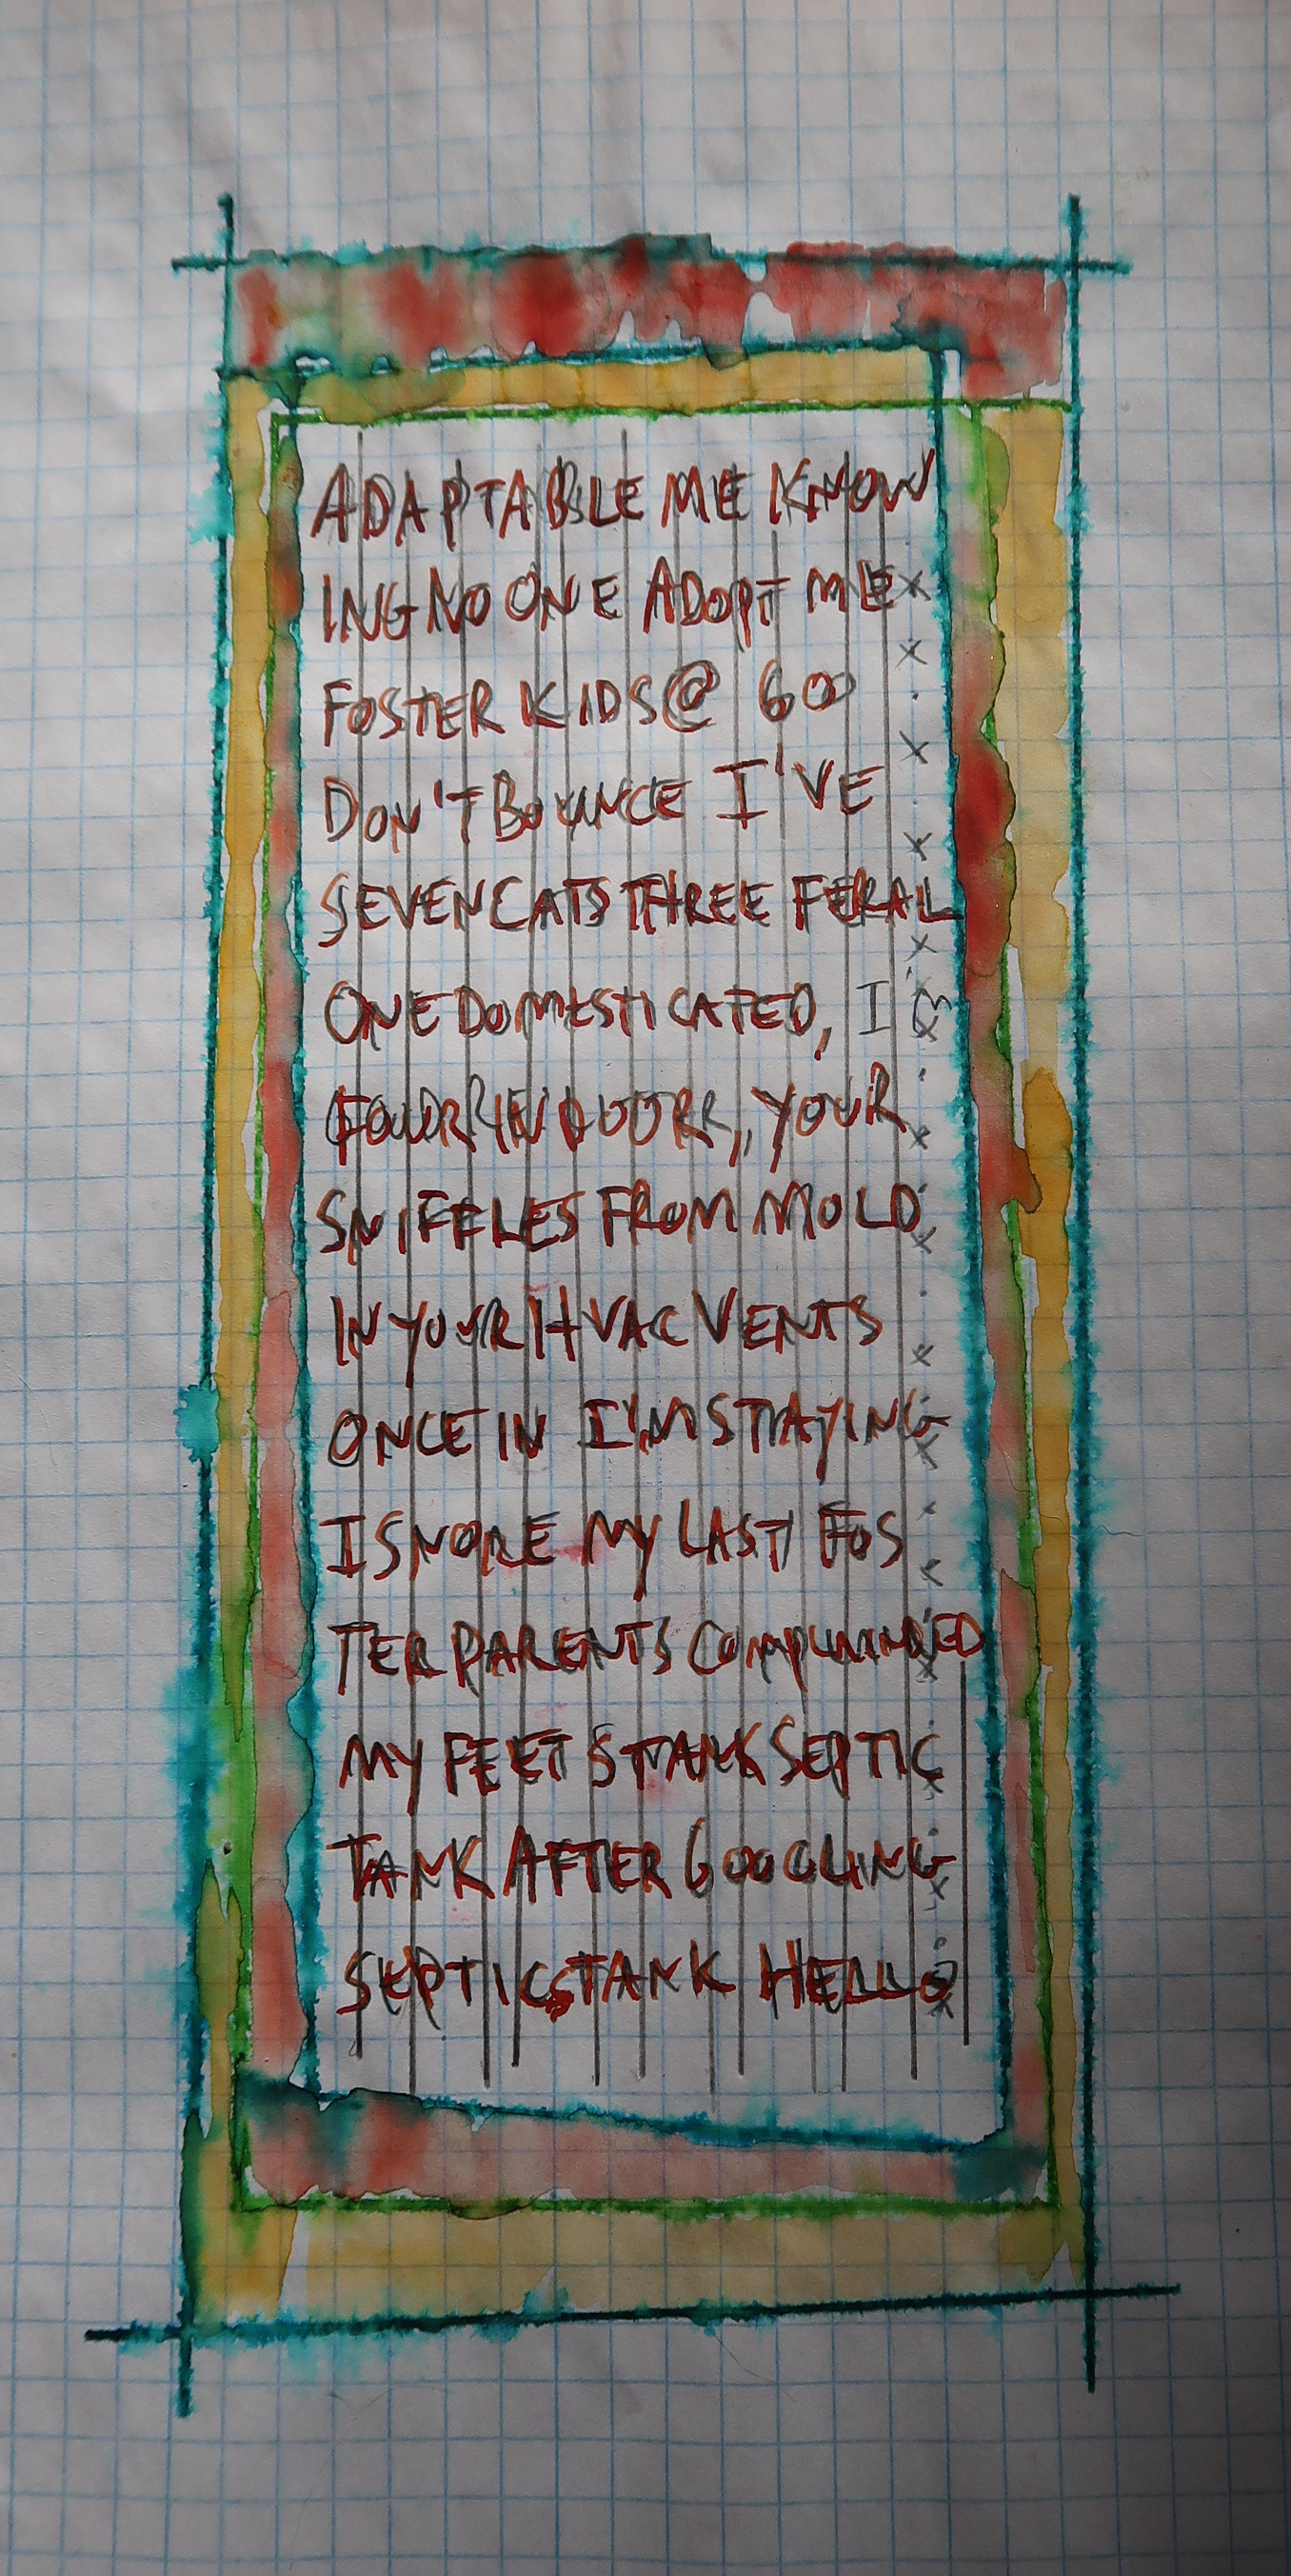 ADAPTABLE ME KNOW
ING NO ONE ADOPT ME
FOSTER KIDS @ 60
DON'T BOUNCE I'VE
SEVEN CATS THREE FERAL
ONE DOMESTICATED, I'M
YOUR
SNIFFLES FROM MOLD
IN YOUR HVAC VENTS
ONCE IN I'M STAYING
I SNORE MY LAST FOS
TER PARENTS
MY FEET STANK SEPTIC
TANK AFTER GOOGLING
SEPTIC TANK HELLO